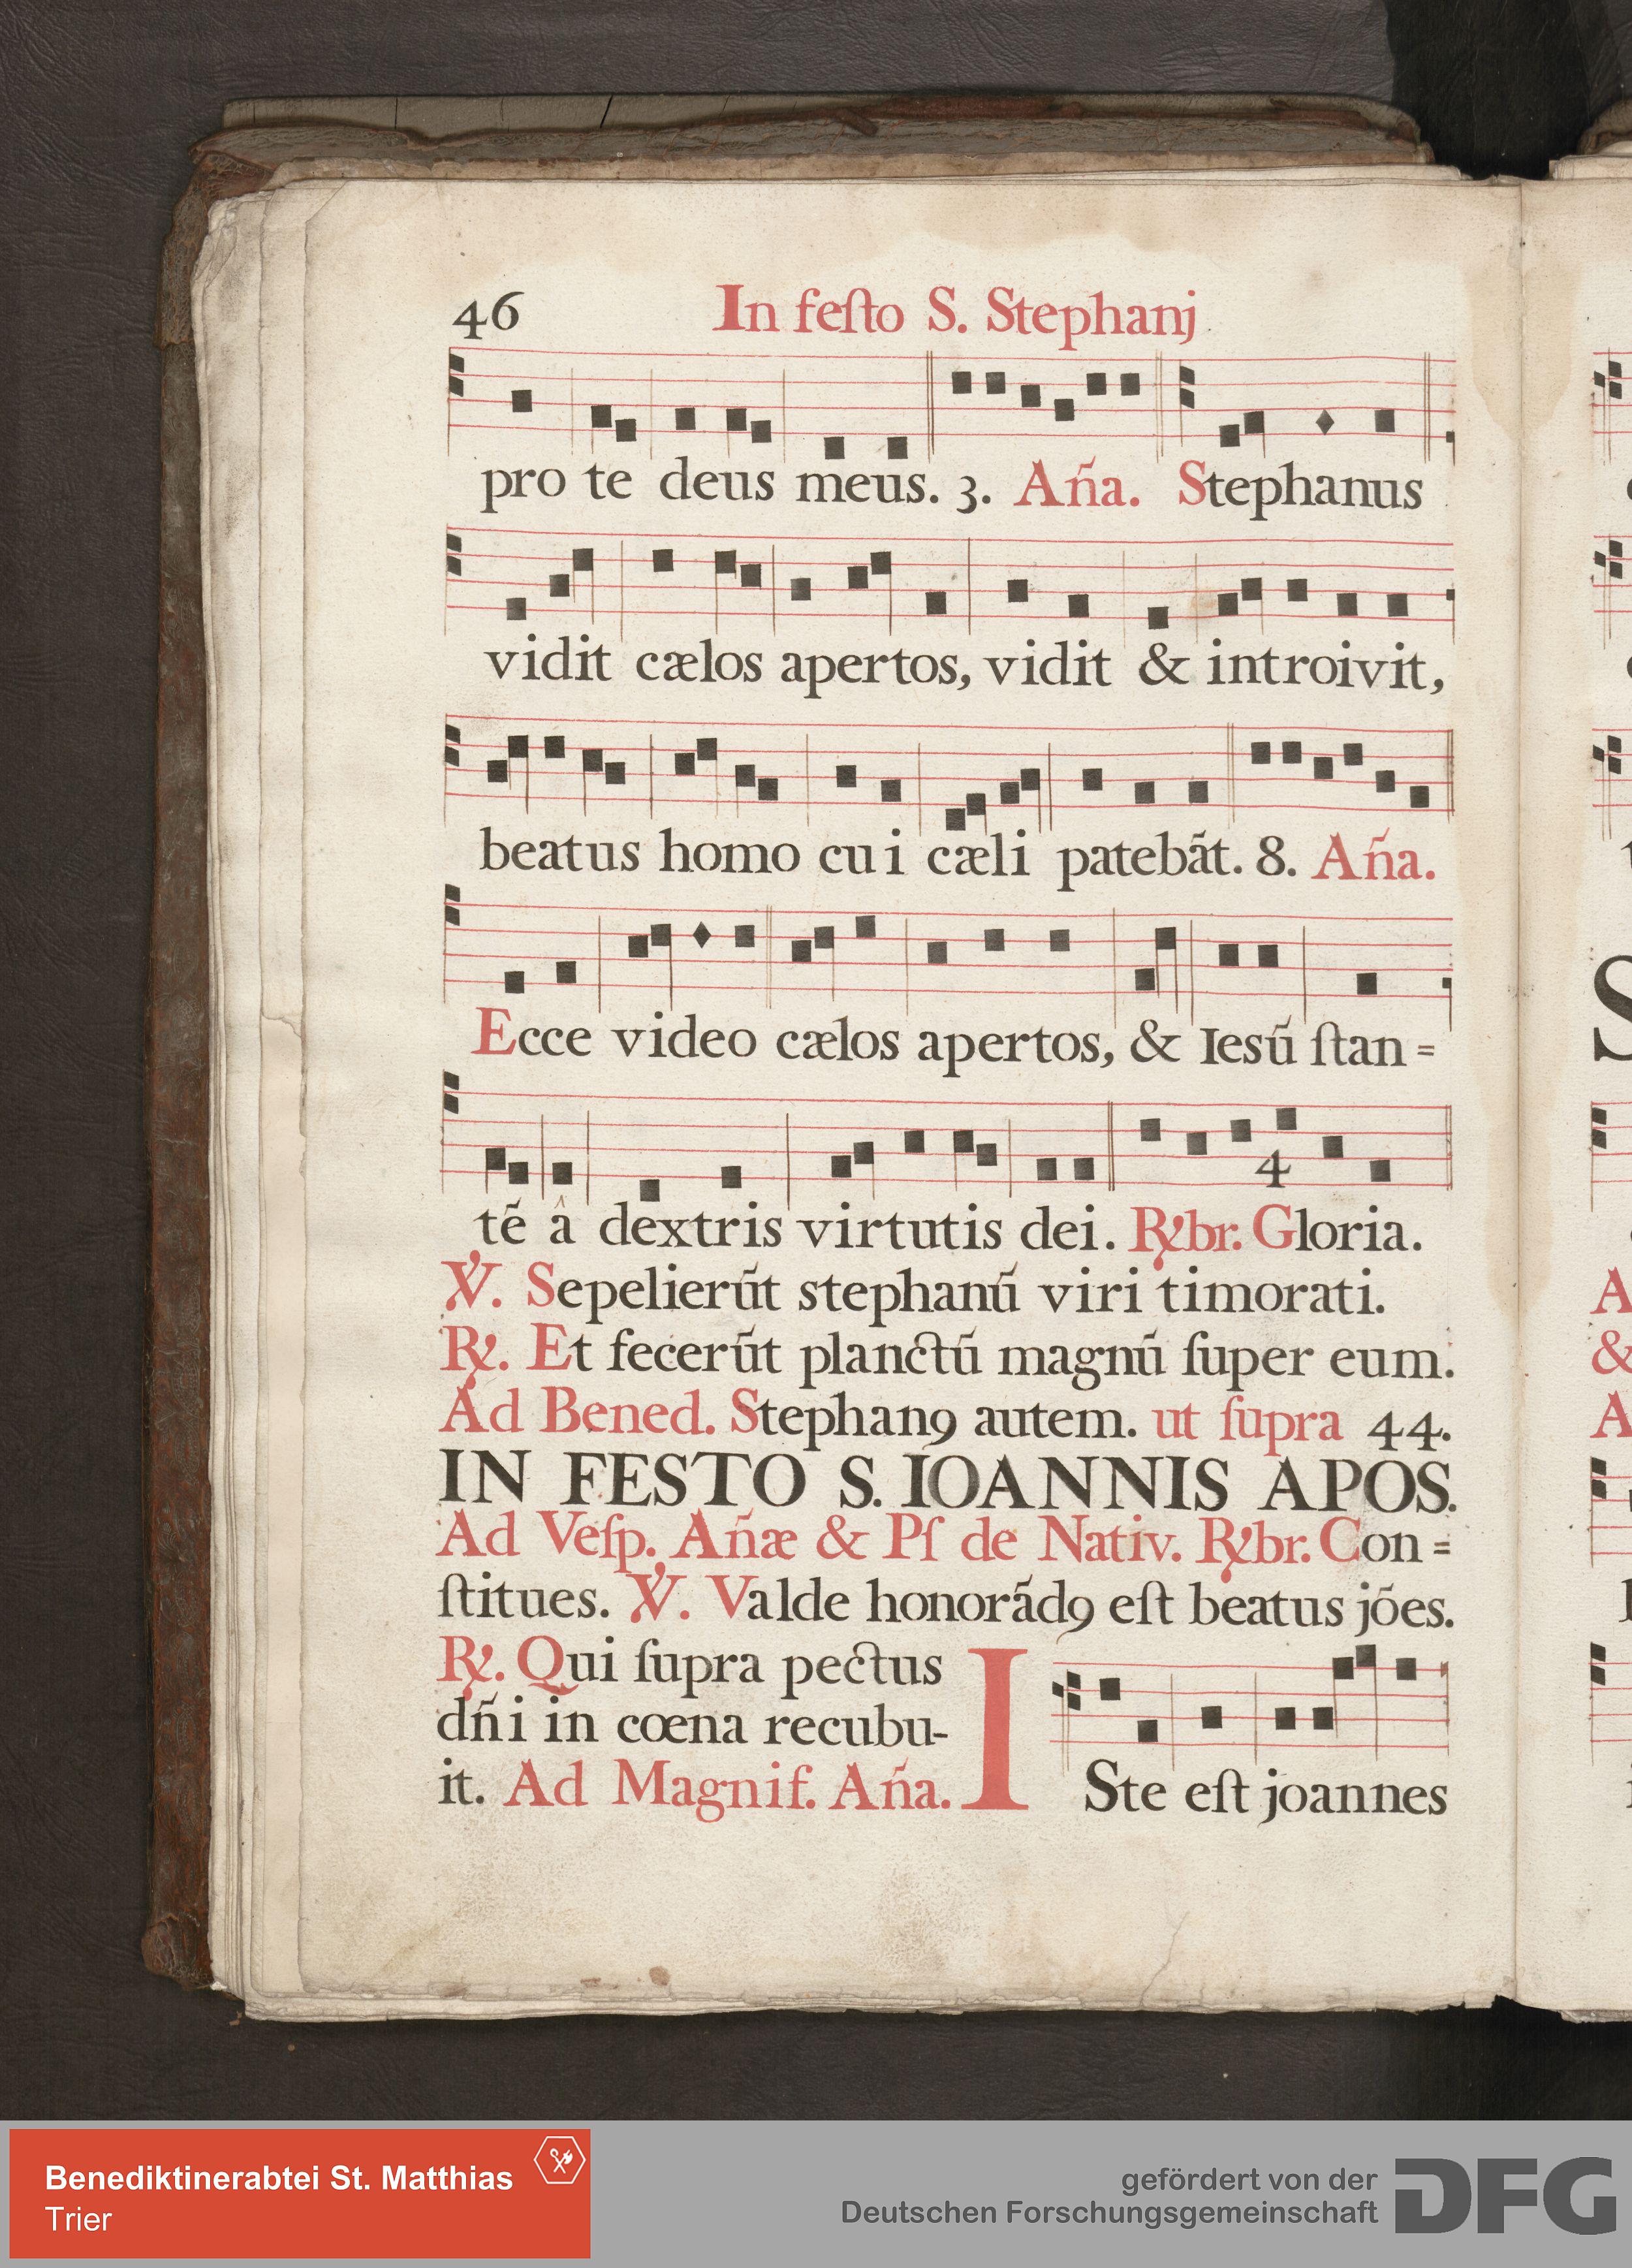 46 In feſto S. Stephanj
pro te deus meus. 3. Aña. Stephanus
vidit cælos apertos, vidit & introivit,
beatus homo cui cæli patebãt. 8. Aña.
Ecce video cælos apertos, & Iesũ ſtan=
4
tẽ â dextris virtutis dei. ℟br. Gloria.
℣. Sepelierũt stephanũ viri timorati.
℟. Et fecerũt planctũ magnũ ſuper eum.
Ad Bened. Stephanꝯ autem. ut ſupra 44.
IN FESTO S. IOANNIS APOS.
Ad Veſp. Añæ & Pſ de Nativ. ℟br. Con=
ſtitues. ℣. Valde honorãdꝯ eſt beatus jões.
℟. Qui ſupra pectus
dñi in cœna recubu-
it. Ad Magnif. Aña.
ISte eſt joannes
Benediktinerabtei St. Matthias
Trier
gefördert von der
Deutschen Forschungsgemeinschaft
DFG